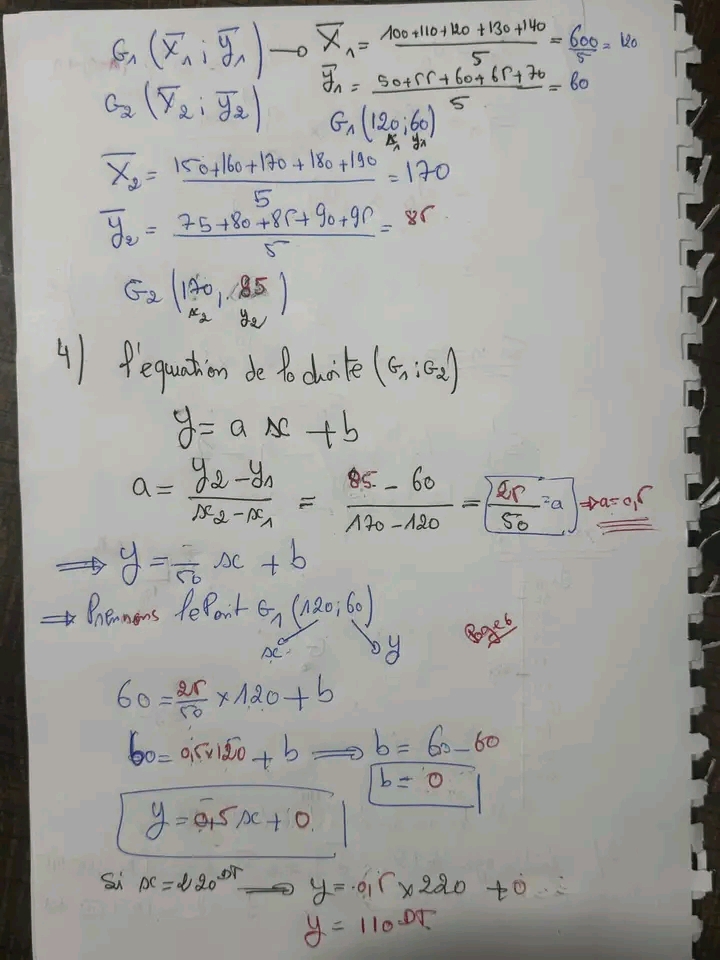 G₁ (X̄₁ ; ȳ₁) → X̄₁ = (100+110+120+130+140)/5 = 600/5 = 120
ȳ₁ = (50+55+60+65+70)/5 = 60
G₂ (X̄₂ ; ȳ₂)
G₁ (120 ; 60)
x₁ y₁
X̄₂ = (150+160+170+180+190)/5 = 170
ȳ₂ = (75+80+85+90+95)/5 = 85
G₂ (170, 85)
x₂ y₂
4) l'equation de la droite (G₁ ; G₂)
y = a x + b
a = (y₂ - y₁)/(x₂ - x₁) = (85 - 60)/(170 - 120) = 25/50 = a ⇒ a = 0,5
⇒ y = /50 x + b
⇒ Prennons le Point G₁ (120 ; 60)
x y
Page 6
60 = 25/50 × 120 + b
60 = 0,5×120 + b ⇒ b = 60 - 60
b = 0
y = 0,5 x + 0
Si x = 220 DT ⇒ y = 0,5 × 220 + 0
y = 110 DT